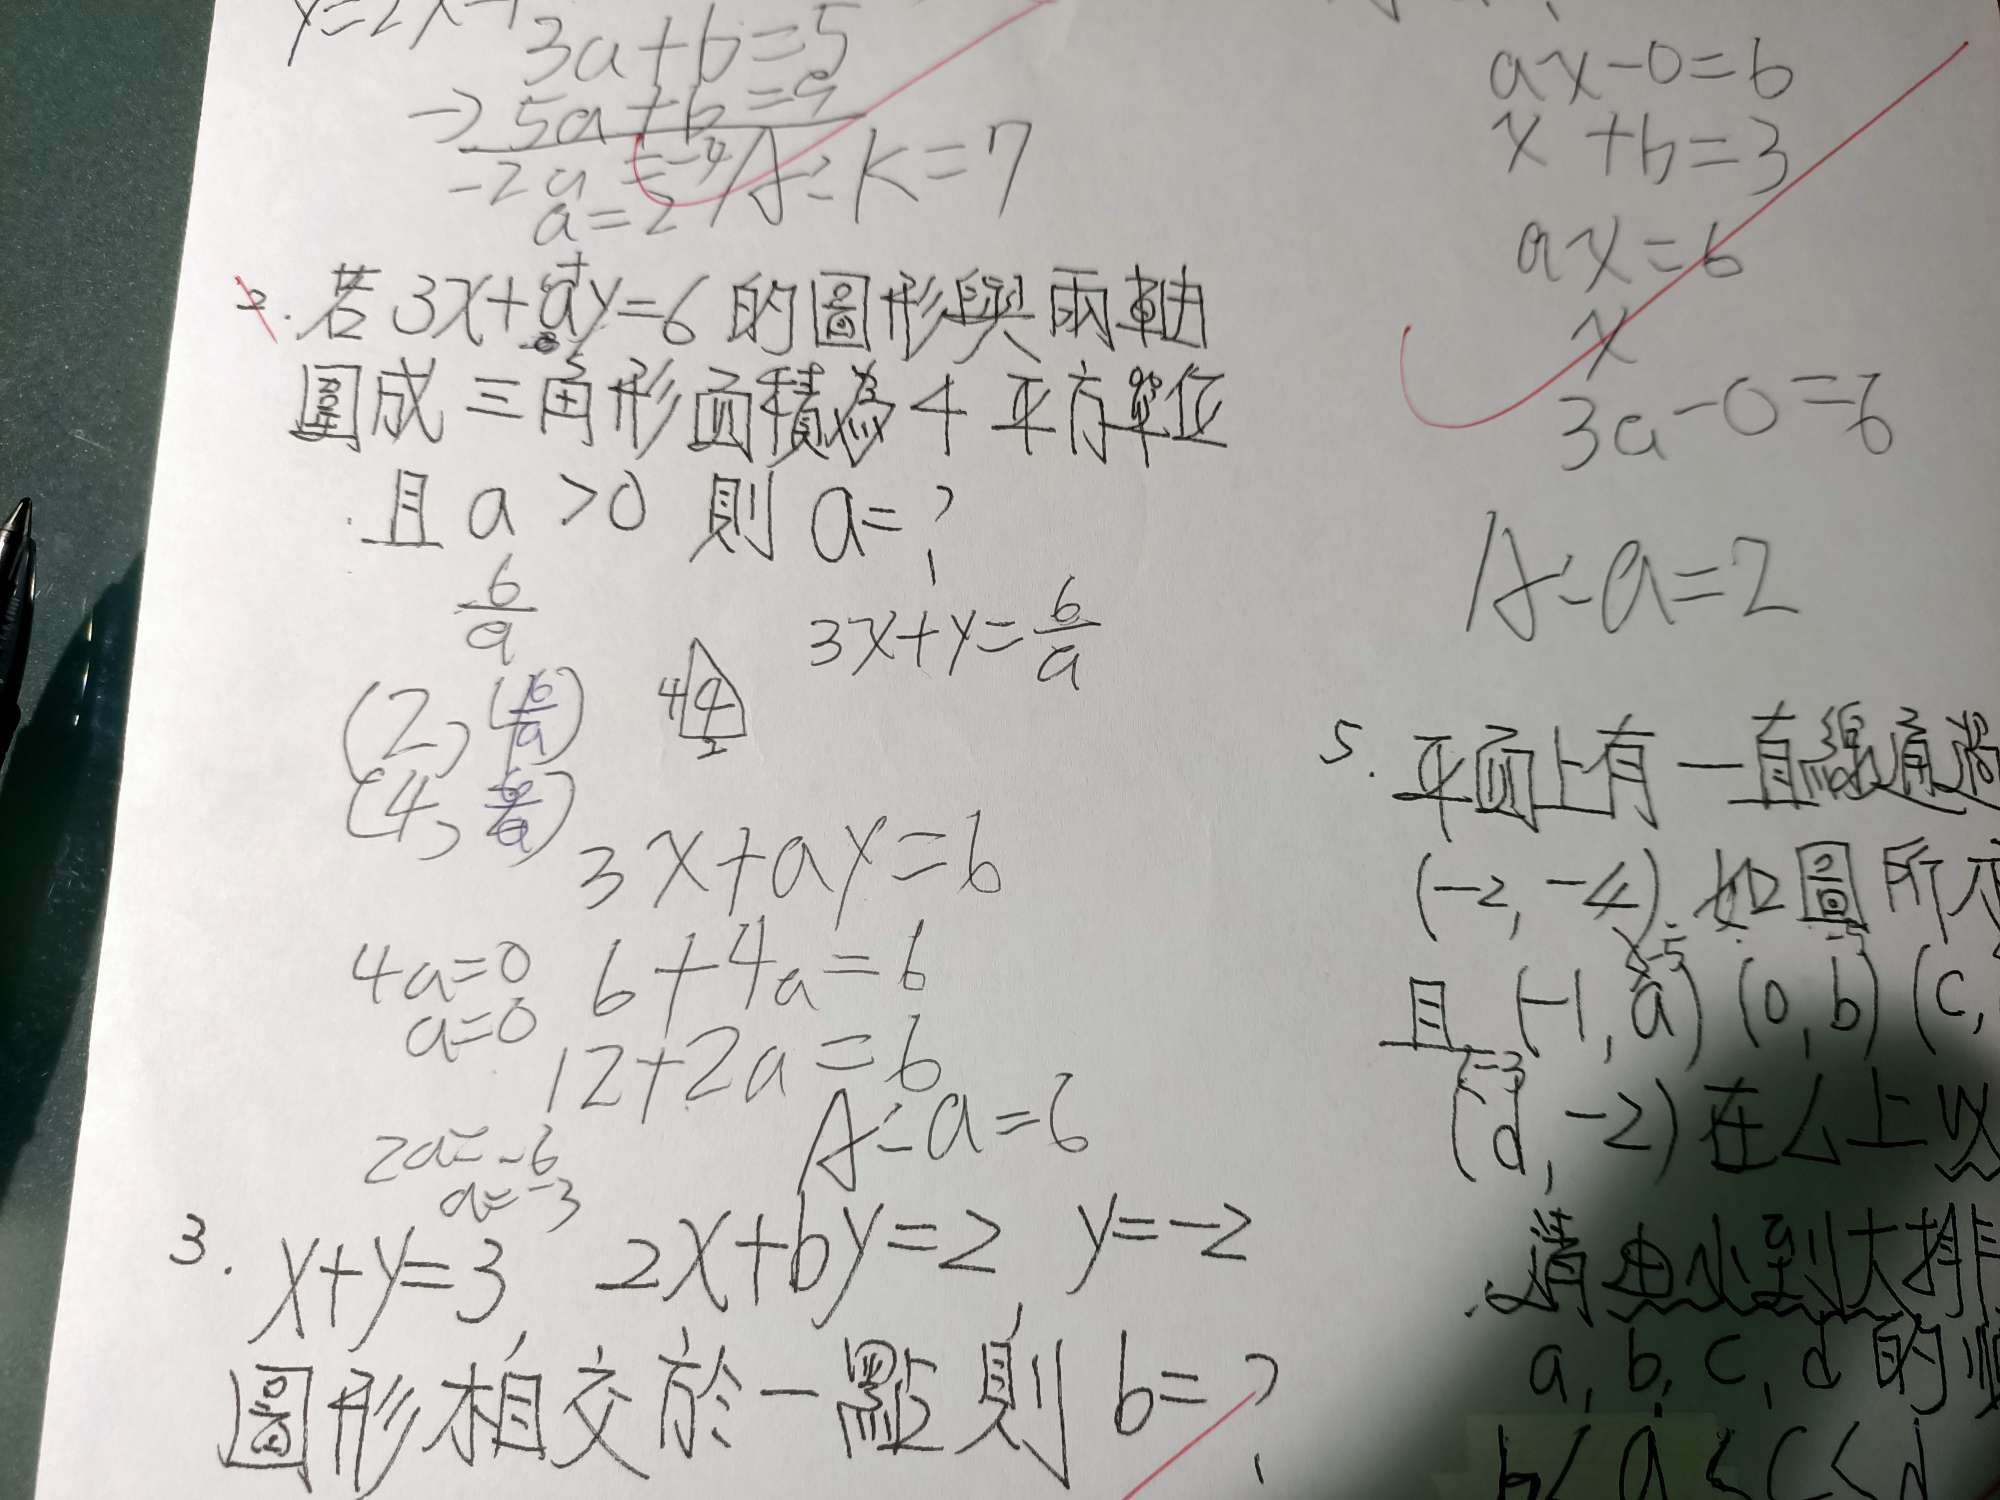 3a+b=5
→ 5a+b=9
-2a=-4
a=2
A:K=7
2. 若3x+ay=6的圖形與兩軸
圍成三角形面積為4平方單位
且a>0 則a=?
6/a
3x+y=6/a
(2, 6/a)
(4, 6/a)
4 4
2
3x+ay=6
4a=0 6+4a=6
a=0
12+2a=6
2a=-6
a=-3
A:a=6
3. x+y=3, 2x+by=2, y=-2
圖形相交於一點則b=?
ax-0=6
x+b=3
ax=6
x
3a-0=6
A:a=2
5. 平面上有一直線通過
(-2,-4) 如圖所
且(-1,a)(0,b)(c,
(d,-2)在L上以
請由小到大排
a,b,c,d的順
b<a<c<d